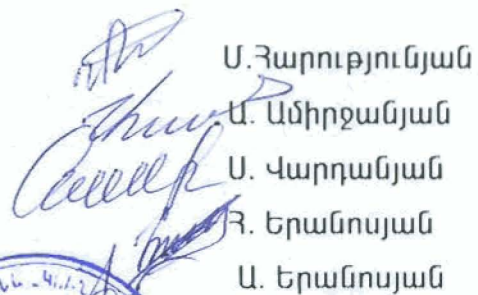 Մ.Հարությունյան
Ա. Ամիրջանյան
Ս. Վարդանյան
Հ. Երանոսյան
Ա. Երանոսյան